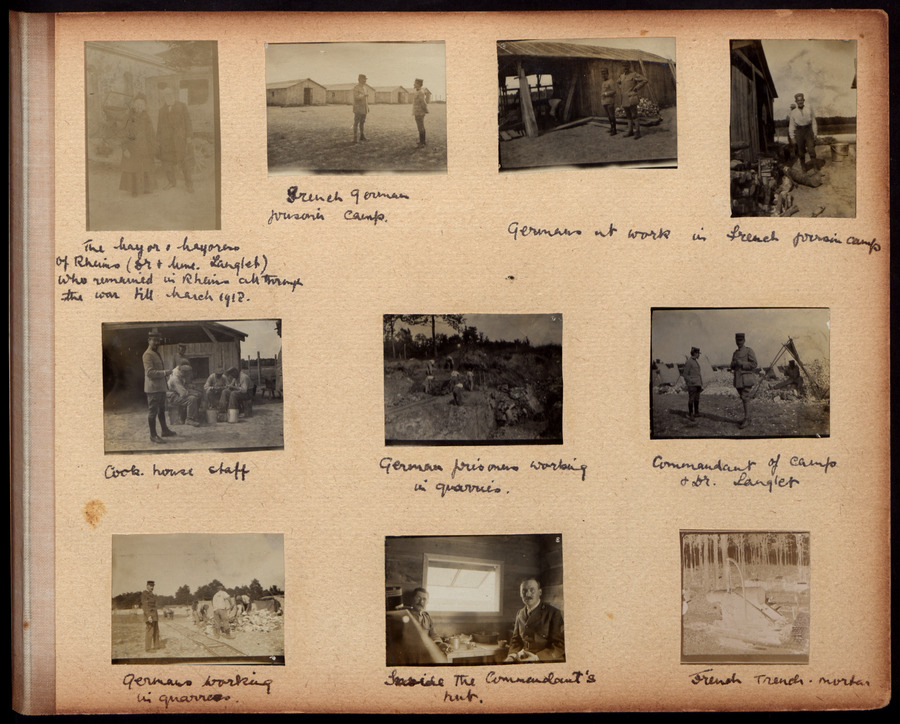 The Mayor & Mayoress
of Rheims (Dr & Mme. Langlet)
who remained in Rheims all through
the war till March 1918.
French German
prisoners camp.
Germans at work in French prison camp
Cook house staff
German prisoners working
in quarries.
Commandant of Camp
& Dr. Langlet
Germans working
in quarries.
Inside the Commandant's
hut.
French Trench-mortar